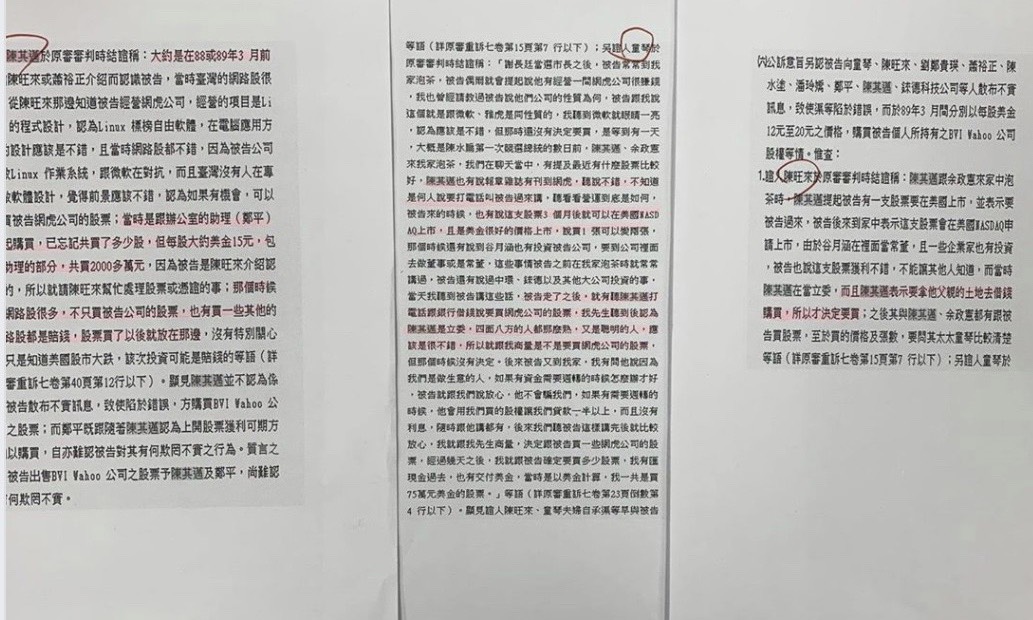 陳其邁於原審審判時結證稱：大約是在88或89年3 月前
陳旺來或蕭裕正介紹而認識被告，當時臺灣的網路股很
從陳旺來那邊知道被告經營網虎公司，經營的項目是Li
的程式設計，認為Linux 標榜自由軟體，在電腦應用方
設計應該是不錯，且當時網路股都不錯，因為被告公司
Linux 作業系統，跟微軟在對抗，而且臺灣沒有人在專
軟體設計，覺得前景應該不錯，認為如果有機會，可以
買被告網虎公司的股票；當時是跟辦公室的助理（鄭平）
起購買，已忘記共買了多少股，但每股大約美金15元，包
助理的部分，共買2000多萬元，因為被告是陳旺來介紹認
的，所以就請陳旺來幫忙處理股票或憑證的事；那個時候
網路股很多，不只買被告公司的股票，也有買一些其他的
路股都是賠錢，股票買了以後就放在那邊，沒有特別關心
只是知道美國股市大跌，該次投資可能是賠錢的等語（詳
審重訴七卷第40頁第12行以下）。顯見陳其邁並不認為係
被告散布不實訊息，致使陷於錯誤，方購買BVI Wahoo 公
之股票；而鄭平既跟隨著陳其邁認為上開股票獲利可期方
以購買，自亦難認被告對其有何欺罔不實之行為。質言之
被告出售BVI Wahoo 公司之股票予陳其邁及鄭平，尚難認
何欺罔不實。
等語（詳原審重訴七卷第15頁第7 行以下）；另證人童琴於
原審審判時結證稱：「謝長廷當選市長之後，被告常常到我
家泡茶，被告偶爾就會提起說他有經營一間網虎公司很賺錢
，我也曾經請教過被告說他們公司的性質為何，被告跟我說
這個就是跟微軟、雅虎是同性質的，我聽到微軟就眼睛一亮
，認為應該是不錯，但那時還沒有決定要買，是等到有一天
，大概是陳水扁第一次競選總統的數日前，陳其邁、余政憲
來我家泡茶，我們在聊天當中，有提及最近有什麼股票比較
好，陳其邁也有說報章雜誌有刊到網虎，聽說不錯，不知道
是何人說要打電話叫被告過來講，聽看看營運到底是如何，
被告來的時候，也有說這支股票3 個月後就可以在美國NASD
AQ上市，且是美金很好的價格上市，說買1 張可以變兩張，
那個時候還有說到谷月涵也有投資被告公司，要到公司裡面
去做董事或是常董，這些事情被告之前在我家泡茶時就常常
講過，被告還有說過中環、錸德以及其他大公司投資的事，
當天我聽到被告講這些話，被告走了之後，就有聽陳其邁打
電話跟銀行借錢說要買網虎公司的股票，我先生聽到後認為
陳其邁是立委，四面八方的人都那麼熟，又是聰明的人，應
該是很不錯，所以就跟我商量是不是要買網虎公司的股票，
但那個時候沒有決定。後來被告又到我家，我有問他說因為
我們是做生意的人，如果有資金需要週轉的時候怎麼辦才好
，被告就跟我們說放心，他不會騙我們，如果有需要週轉的
時候，他會用我們買的股權讓我們貸款一半以上，而且沒有
利息，隨時跟他講都有，後來我們聽被告這樣講完後就比較
放心，我就跟我先生商量，決定跟被告買一些網虎公司的股
票，經過幾天之後，我就跟被告確定要買多少股票，我有匯
現金過去，也有交付美金，當時是以美金計算，我一共是買
75萬元美金的股票。」等語（詳原審重訴七卷第23頁倒數第
4 行以下）。顯見證人陳旺來、童琴夫婦自承渠等早與被告
公訴意旨另認被告向童琴、陳旺來、劉鄭貴瑛、蕭裕正、陳
水塗、潘玲嬌、鄭平、陳其邁、錸德科技公司等人散布不實
訊息，致使渠等陷於錯誤，而於89年3 月間分別以每股美金
12元至20元之價格，購買被告個人所持有之BVI Wahoo 公司
股權等情。惟查：
1.證人陳旺來於原審審判時結證稱：陳其邁跟余政憲來家中泡
茶時，陳其邁提起被告有一支股票要在美國上市，並表示要
被告過來，被告後來到家中表示這支股票會在美國NASDAQ申
請上市，由於谷月涵在裡面當常董，且一些企業家也有投資
，被告也說這支股票獲利不錯，不能讓其他人知道，而當時
陳其邁在當立委，而且陳其邁表示要拿他父親的土地去借錢
購買，所以才決定要買；之後其與陳其邁、余政憲都有跟被
告買股票，至於買的價格及張數，要問其太太童琴比較清楚
等語（詳原審重訴七卷第15頁第7 行以下）；另證人童琴於